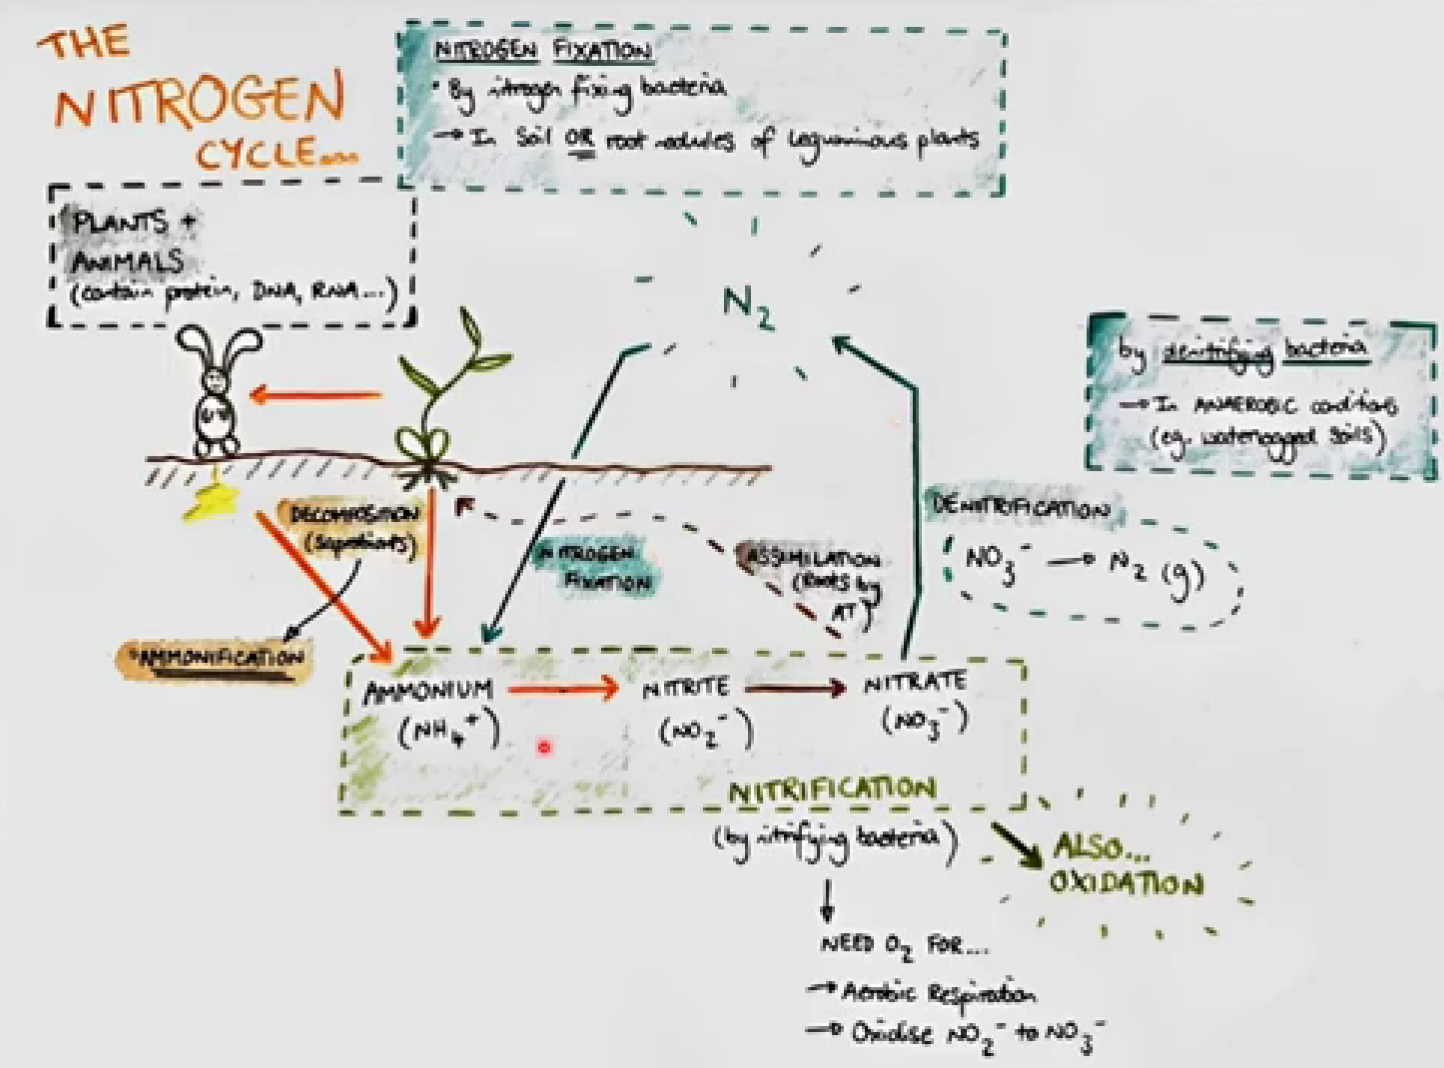 THE
NITROGEN
CYCLE....
NITROGEN FIXATION
• By nitrogen fixing bacteria
→ In soil OR root nodules of leguminous plants
PLANTS +
ANIMALS
(contain protein, DNA, RNA...)
N₂
by denitrifying bacteria
→ In ANAEROBIC conditions
(eg. waterlogged soils)
DECOMPOSITION
(Saprobionts)
NITROGEN
FIXATION
ASSIMILATION
(Roots by
AT)
DENITRIFICATION
NO₃⁻ → N₂ (g)
*AMMONIFICATION
AMMONIUM → NITRITE → NITRATE
(NH₄⁺) (NO₂⁻) (NO₃⁻)
NITRIFICATION
(by nitrifying bacteria)
ALSO...
OXIDATION
NEED O₂ FOR...
→ Aerobic Respiration
→ Oxidise NO₂⁻ to NO₃⁻